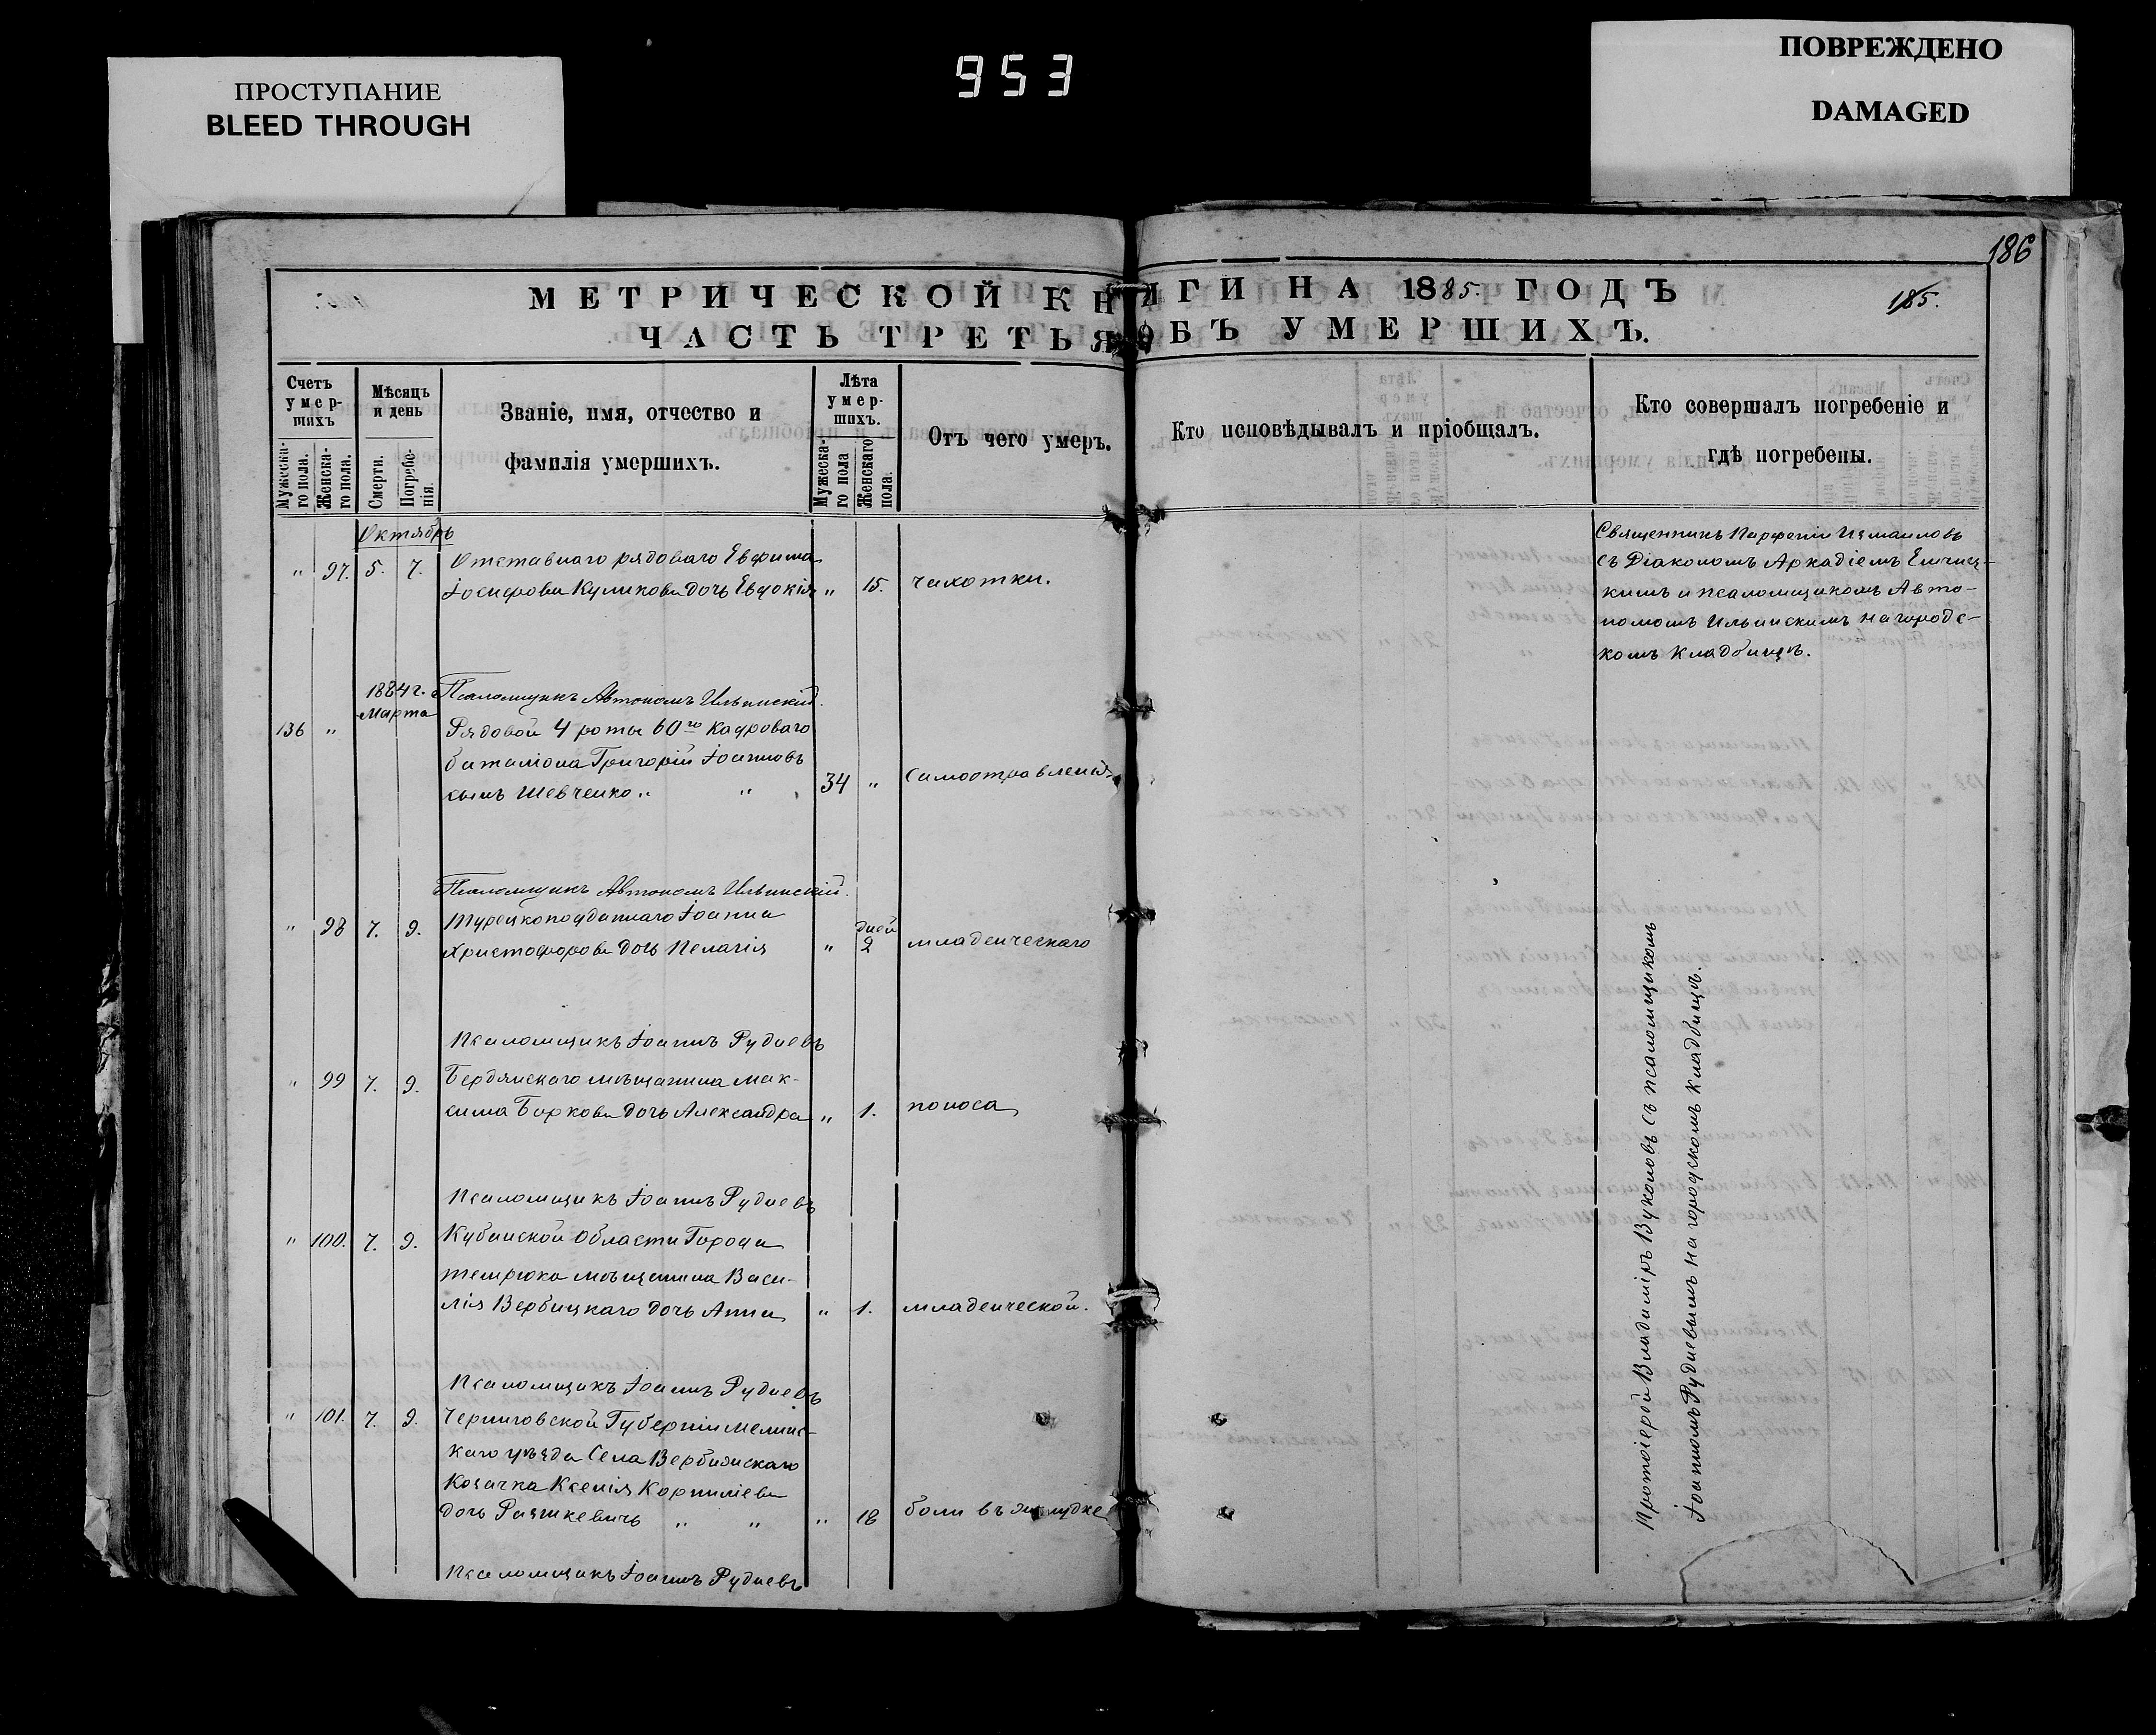 ПРОСТУПАНИЕ
BLEED THROUGH
953
ПОВРЕЖДЕНО
DAMAGED
186
МЕТРИЧЕСКОЙ КНИГИ НА 1885 ГОДЪ
185.
ЧАСТЬ ТРЕТЬЯ ОБЪ УМЕРШИХЪ.
Счетъ умер-шихъ
Мужеска-го пола.
Женска-го пола.
Мѣсяцъ и день
Смерти.
Погребе-нія.
Званіе, имя, отчество и
фамилія умершихъ.
Лѣта умер-шихъ.
Мужеска-го пола
Женскаго пола.
Отъ чего умеръ.
Кто исповѣдывалъ и пріобщалъ.
Кто совершалъ погребеніе и
гдѣ погребены.
Октябрь
" 97. 5. 7. Отставнаго рядоваго Евфима
Іосифова Куликова дочь Евдокія " 15. чахотки.
Священникъ Парфеній Измаиловъ
съ Діакономъ Аркадіемъ
кимъ и псаломщикомъ Авто-
номомъ Ильинскимъ на городс-
комъ кладбищѣ.
Псаломщикъ Автономъ Ильинскій.
1884 г.
Марта
136 " Рядовой 4 роты 60го Кадроваго
баталіона Григорій Іоанновъ
сынъ Шевченко " " 34 " самоотравленія
Псаломщикъ Автономъ Ильинскій.
" 98 7. 9. Турецкоподданнаго Іоанна
Христофорова дочь Пелагія " дней 2 младенческаго
Псаломщикъ Іоаннъ Рудневъ
" 99 7. 9. Бердянскаго мѣщанина Мак-
сима Боркова дочь Александра " 1. поноса
Псаломщикъ Іоаннъ Рудневъ
" 100. 7. 9. Кубанской области Города
Темрюка мѣщанина Васи-
лія Вербицкаго дочь Анна " 1. младенческой.
Псаломщикъ Іоаннъ Рудневъ
" 101. 7. 9. Черниговской Губерніи
каго уѣзда Села
Козачка Ксенія Корниліева
дочь " " " 18 боли въ желудке
Псаломщикъ Іоаннъ Рудневъ
Протоіерей Владиміръ Вуколовъ съ псаломщикомъ
Іоанномъ Рудневымъ на городскомъ кладбищѣ.